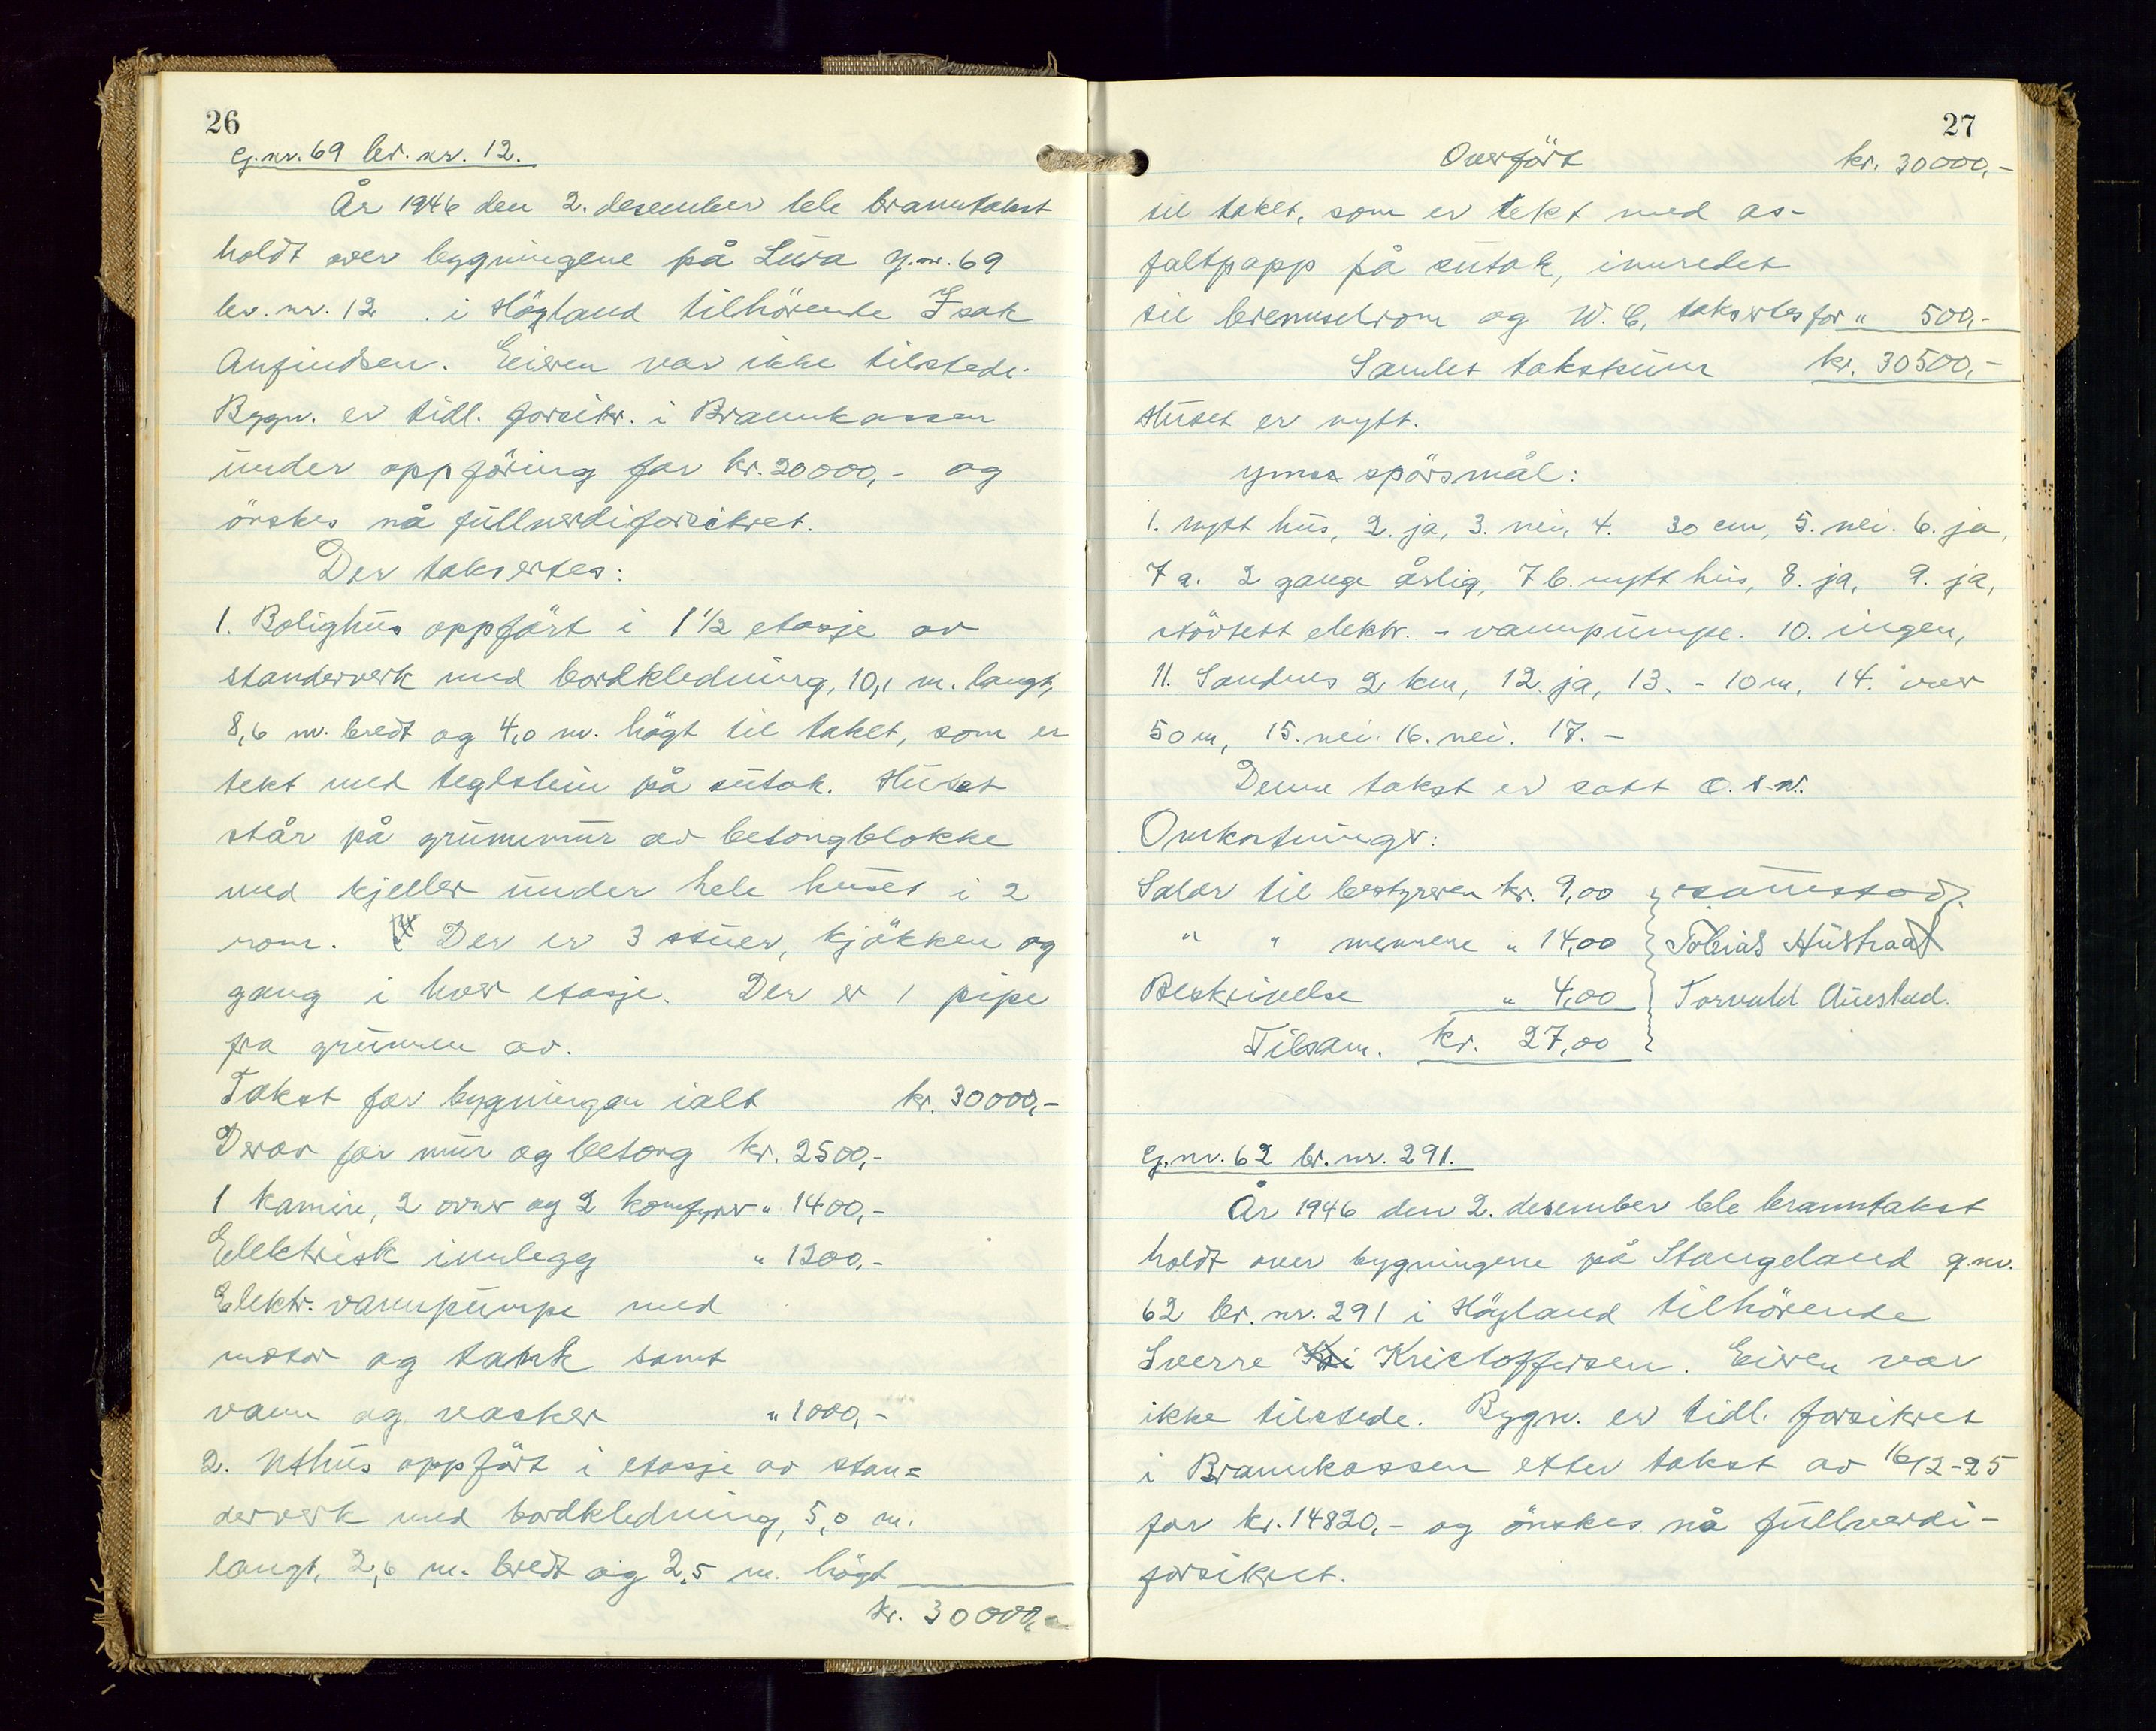 26
G.nr. 69 br. nr. 12.
År 1946 den 2. desember ble branntakst
holdt over bygningene på Lura g.nr. 69
br. nr. 12 . i Högland tilhörende Isak
Anfindsen. Eieren var ikke tilstede.
Bygn. er tidl. forsikr. i Brannkassen
under oppföring for kr. 20000,- og
önskes nå fullverdiforsikret.
Der takseres:
1. Bolighus oppfört i 1 1/2 etasje av
standerverk med bordkledning, 10,1 m. langt,
8,6 m. bredt og 4,0 m. högt til taket, som er
tekt med teglstein på sutak. Huset
står på grunnmur av betongblokke
med kjeller under hele huset i 2
rom. Der er 3 stuer, kjökken og
gang i hver etasje. Der er 1 pipe
fra grunnen av.
Takst for bygningen ialt kr. 30000,-
Derav for mur og betong kr. 2500,-
1 kamin, 2 ovner og 2 komfyrer " 1400,-
Elektrisk innlegg " 1200,-
Elektr. vannpumpe med
motor og tank samt
vann og vasker " 1000,-
2. Uthus oppfört i etasje av stan=
derverk med bordkledning, 5,0 m.
langt, 2,6 m. bredt og 2,5 m. högt
kr. 30000,-
27
Overfört kr. 30000,-
til taket, som er tekt med as-
faltpapp på sutak, innredet
til brenselrom og W.C. takseres for " 500,-
Samlet takstsum kr. 30500,-
Huset er nytt.
Ymse spörsmål:
1. nytt hus, 2. ja, 3. nei, 4. 30 cm, 5. nei. 6. ja,
7 a. 2 gange årlig, 7 b. nytt hus, 8. ja, 9. ja,
elektr. - vannpumpe. 10. ingen,
11. Sandnes 2 km, 12. ja, 13. - 10 m, 14. over
50 m, 15. nei. 16. nei. 17. -
Denne takst er satt o.s.v.
Omkostninger:
Salær til bestyreren kr. 9,00
" " mennene " 14,00 Tobias Hustraat
Beskrivelse " 4,00 Torvald Auestad.
Tilsam. kr. 27,00
G.nr. 62 br. nr. 291.
År 1946 den 2. desember ble branntakst
holdt over bygningene på Stangeland g.nr.
62 br. nr. 291 i Högland tilhörende
Sverre Kristoffersen. Eieren var
ikke tilstede. Bygn. er tidl. forsikret
i Brannkassen etter takst av 16/12-25
for kr. 14820,- og önskes nå fullverdi-
forsikret.